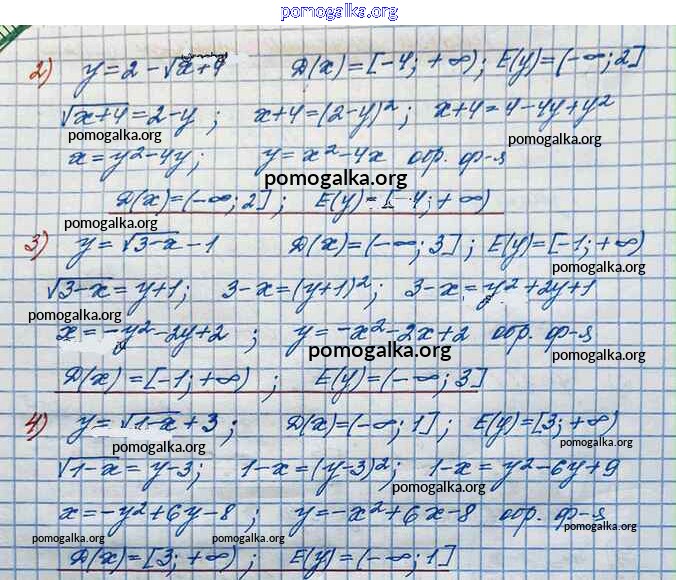 pomogalka.org
2) y=2-√x+4 D(x)=[-4;+∞); E(y)=(-∞;2]
√x+4=2-y; x+4=(2-y)²; x+4=4-4y+y²
pomogalka.org pomogalka.org
x=y²-4y; y=x²-4x обр. ф-я
pomogalka.org
D(x)=(-∞;2]; E(y)=[-4;+∞)
pomogalka.org
3) y=√3-x-1 D(x)=(-∞;3]; E(y)=[-1;+∞)
pomogalka.org
√3-x=y+1; 3-x=(y+1)²; 3-x=y²+2y+1
pomogalka.org
x=-y²-2y+2; y=-x²-2x+2 обр. ф-я
pomogalka.org pomogalka.org
D(x)=[-1;+∞); E(y)=(-∞;3]
4) y=√1-x+3; D(x)=(-∞;1]; E(y)=[3;+∞)
pomogalka.org pomogalka.org
√1-x=y-3; 1-x=(y-3)²; 1-x=y²-6y+9
pomogalka.org
x=-y²+6y-8; y=-x²+6x-8 обр. ф-я
pomogalka.org pomogalka.org pomogalka.org
D(x)=[3;+∞); E(y)=(-∞;1]